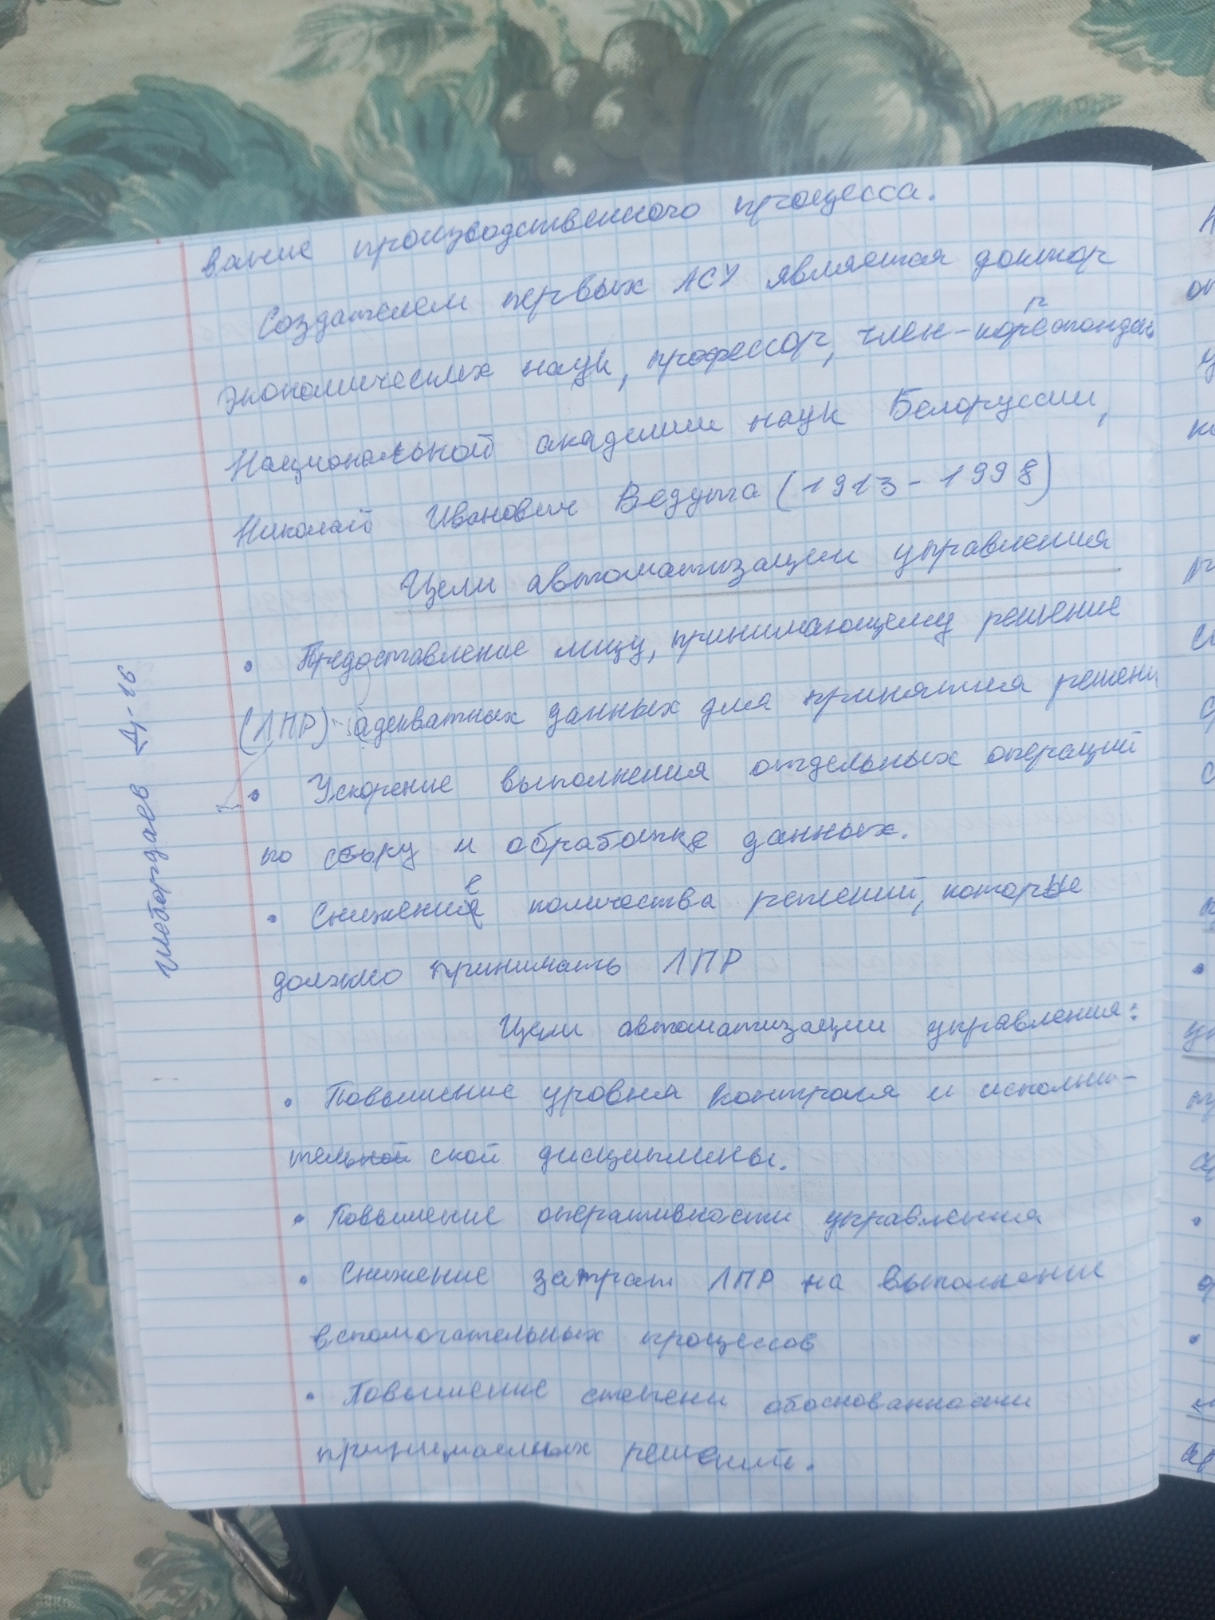 вание производственного процесса.
Создателем первых АСУ является доктор
экономических наук, профессор, член-корреспонден
Национальной академии наук Белоруссии,
Николай Иванович Ведута (1913-1998)
Цели автоматизации управления
• Предоставление лицу, принимающему решение
(ЛПР) адекватных данных для принятия решени
• Ускорение выполнения отдельных операций
по сбору и обработке данных.
• Снижение количества решений, которые
должно принимать ЛПР
Цели автоматизации управления:
• Повышение уровня контроля и исполни-
тельной ской дисциплины.
• Повышение оперативности управления
• Снижение затрат ЛПР на выполнение
вспомогательных процессов
• Повышение степени обоснованности
принимаемых решений.